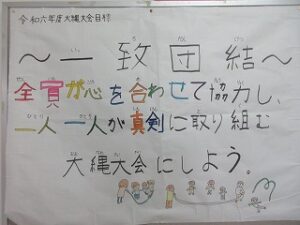 令和六年度大縄大会目標
～一致団結～
全員が心を合わせて協力し、
一人一人が真剣に取り組む
大縄大会にしよう。